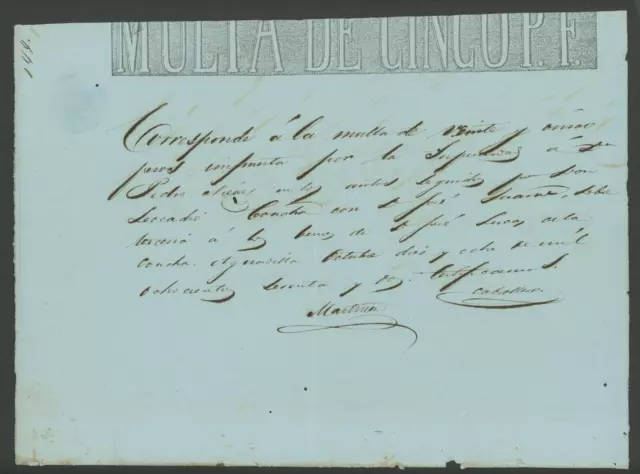 144.
MULTA DE CINCO P. F.
Corresponde á la multa de veinte y cinco
pesos impuesta por la Superioridad á Dn
Pedro en los autos seguidos pr Don
Leocadio Concha con Dn José sobre
terceria á los bienes de Dn José Lucas de la
Concha. Aguadilla Octubre diez y ocho de mil
ochocientos sesenta y
Martinez
Caballero